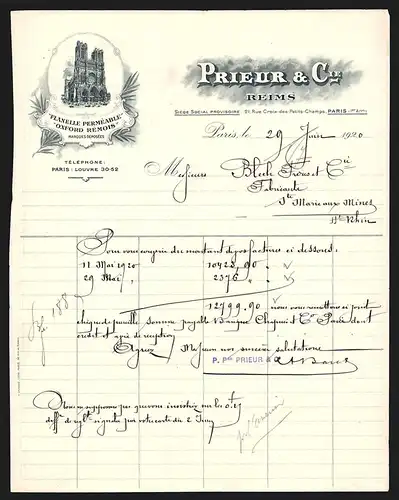 PRIEUR & Cie
REIMS
SIÈGE SOCIAL PROVISOIRE 21, Rue Croix-des-Petits-Champs, PARIS (1er Arrt)
"FLANELLE PERMÉABLE"
"OXFORD RÉMOIS"
MARQUES DÉPOSÉES
TÉLÉPHONE:
PARIS: LOUVRE 30-52
Paris, le 29 Juin 1920
Messieurs Blech Frères et Cie
Fabricants
Ste Marie aux Mines
Ht Rhin
Pour vous couvrir du montant de vos factures ci dessous:
11 Mai 1920 10423,90
29 Mai 2376
12799.90 nous vous remettons ci joint
chèque de pareille somme payable Banque Chapuis et Cie Paris dont
crédit et avis de réception
Agréez Messieurs nos sincères salutations
P. Pon PRIEUR &
Nous supposons que vous avez
par votre carte du 2 Juin